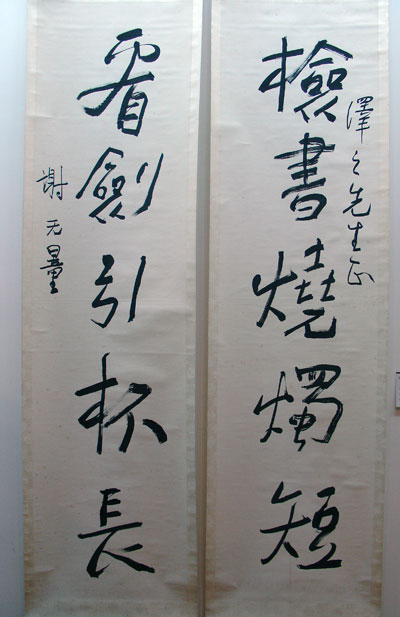 檢書燒燭短
澤之先生正
看劍引杯長
謝无量